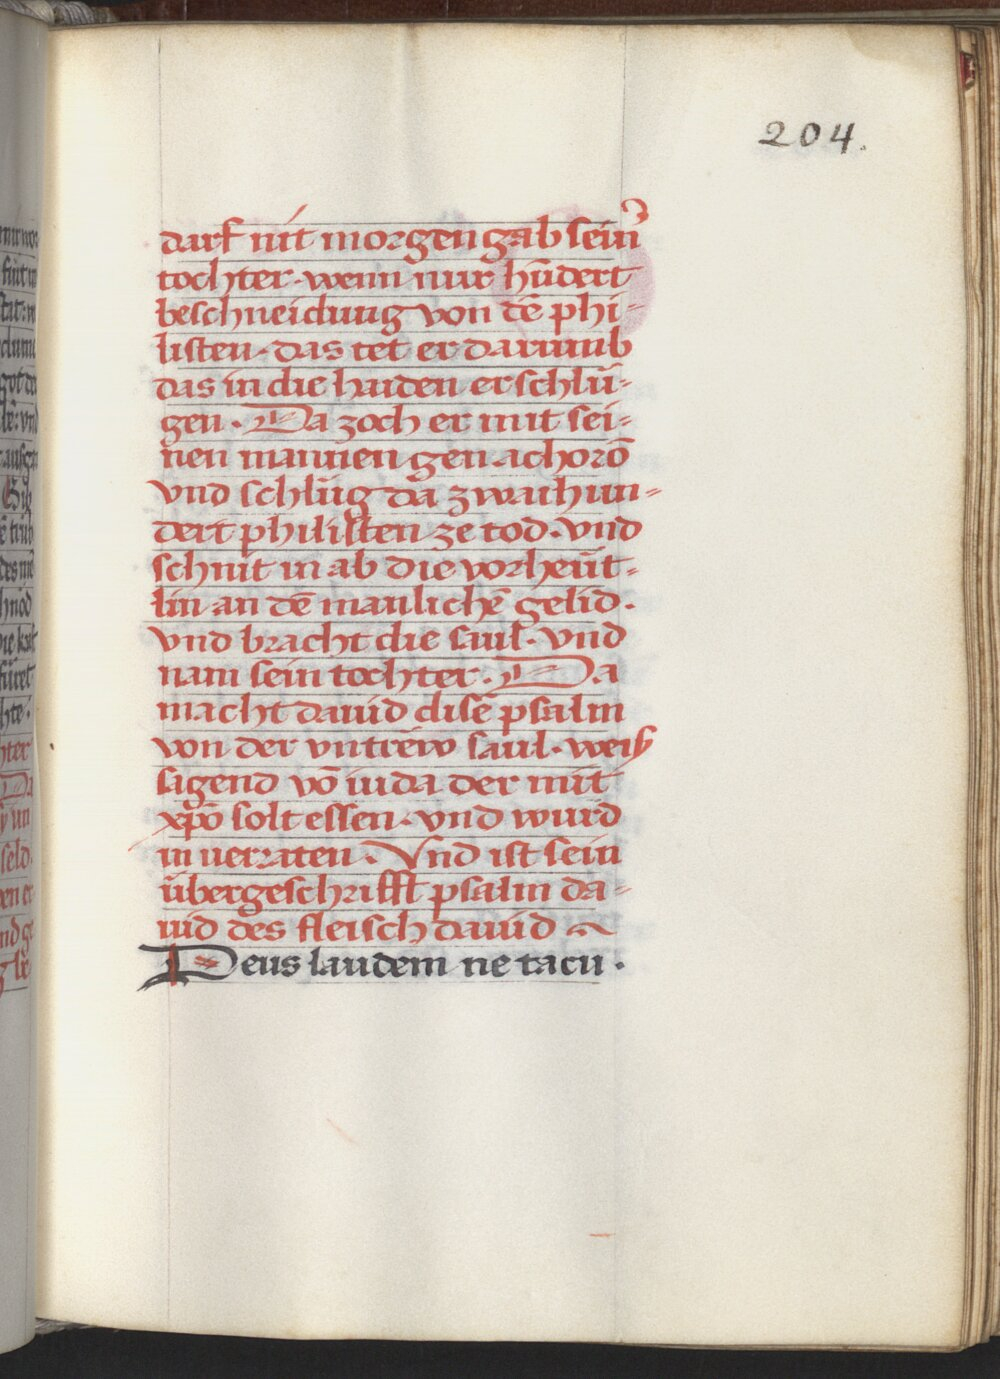 204.
darf nit morgen gab sein̄
tochter. wenn nur hūdert
beschneidung von dē phi-
listen. das tet er darumb
das in die haiden erschlū-
gen. Da zoch er mit sei-
nen mannen gen achorō
vnd schlūg da zwaihun-
dert philisten ze tod. vnd
schnit in ab die vorheūt-
lin an dē manlichē gelid.
vnd bracht die saul. vnd
nam sein tochter. Da
macht dauid disē psalm
von der vntrew saul. weis
sagend vō iuda der mit
xpō solt essen. vnd wurd
in verraten. Vnd ist sein
übergeschrifft psalm da-
uid des fleisch dauid
Deus laudem ne tacu.